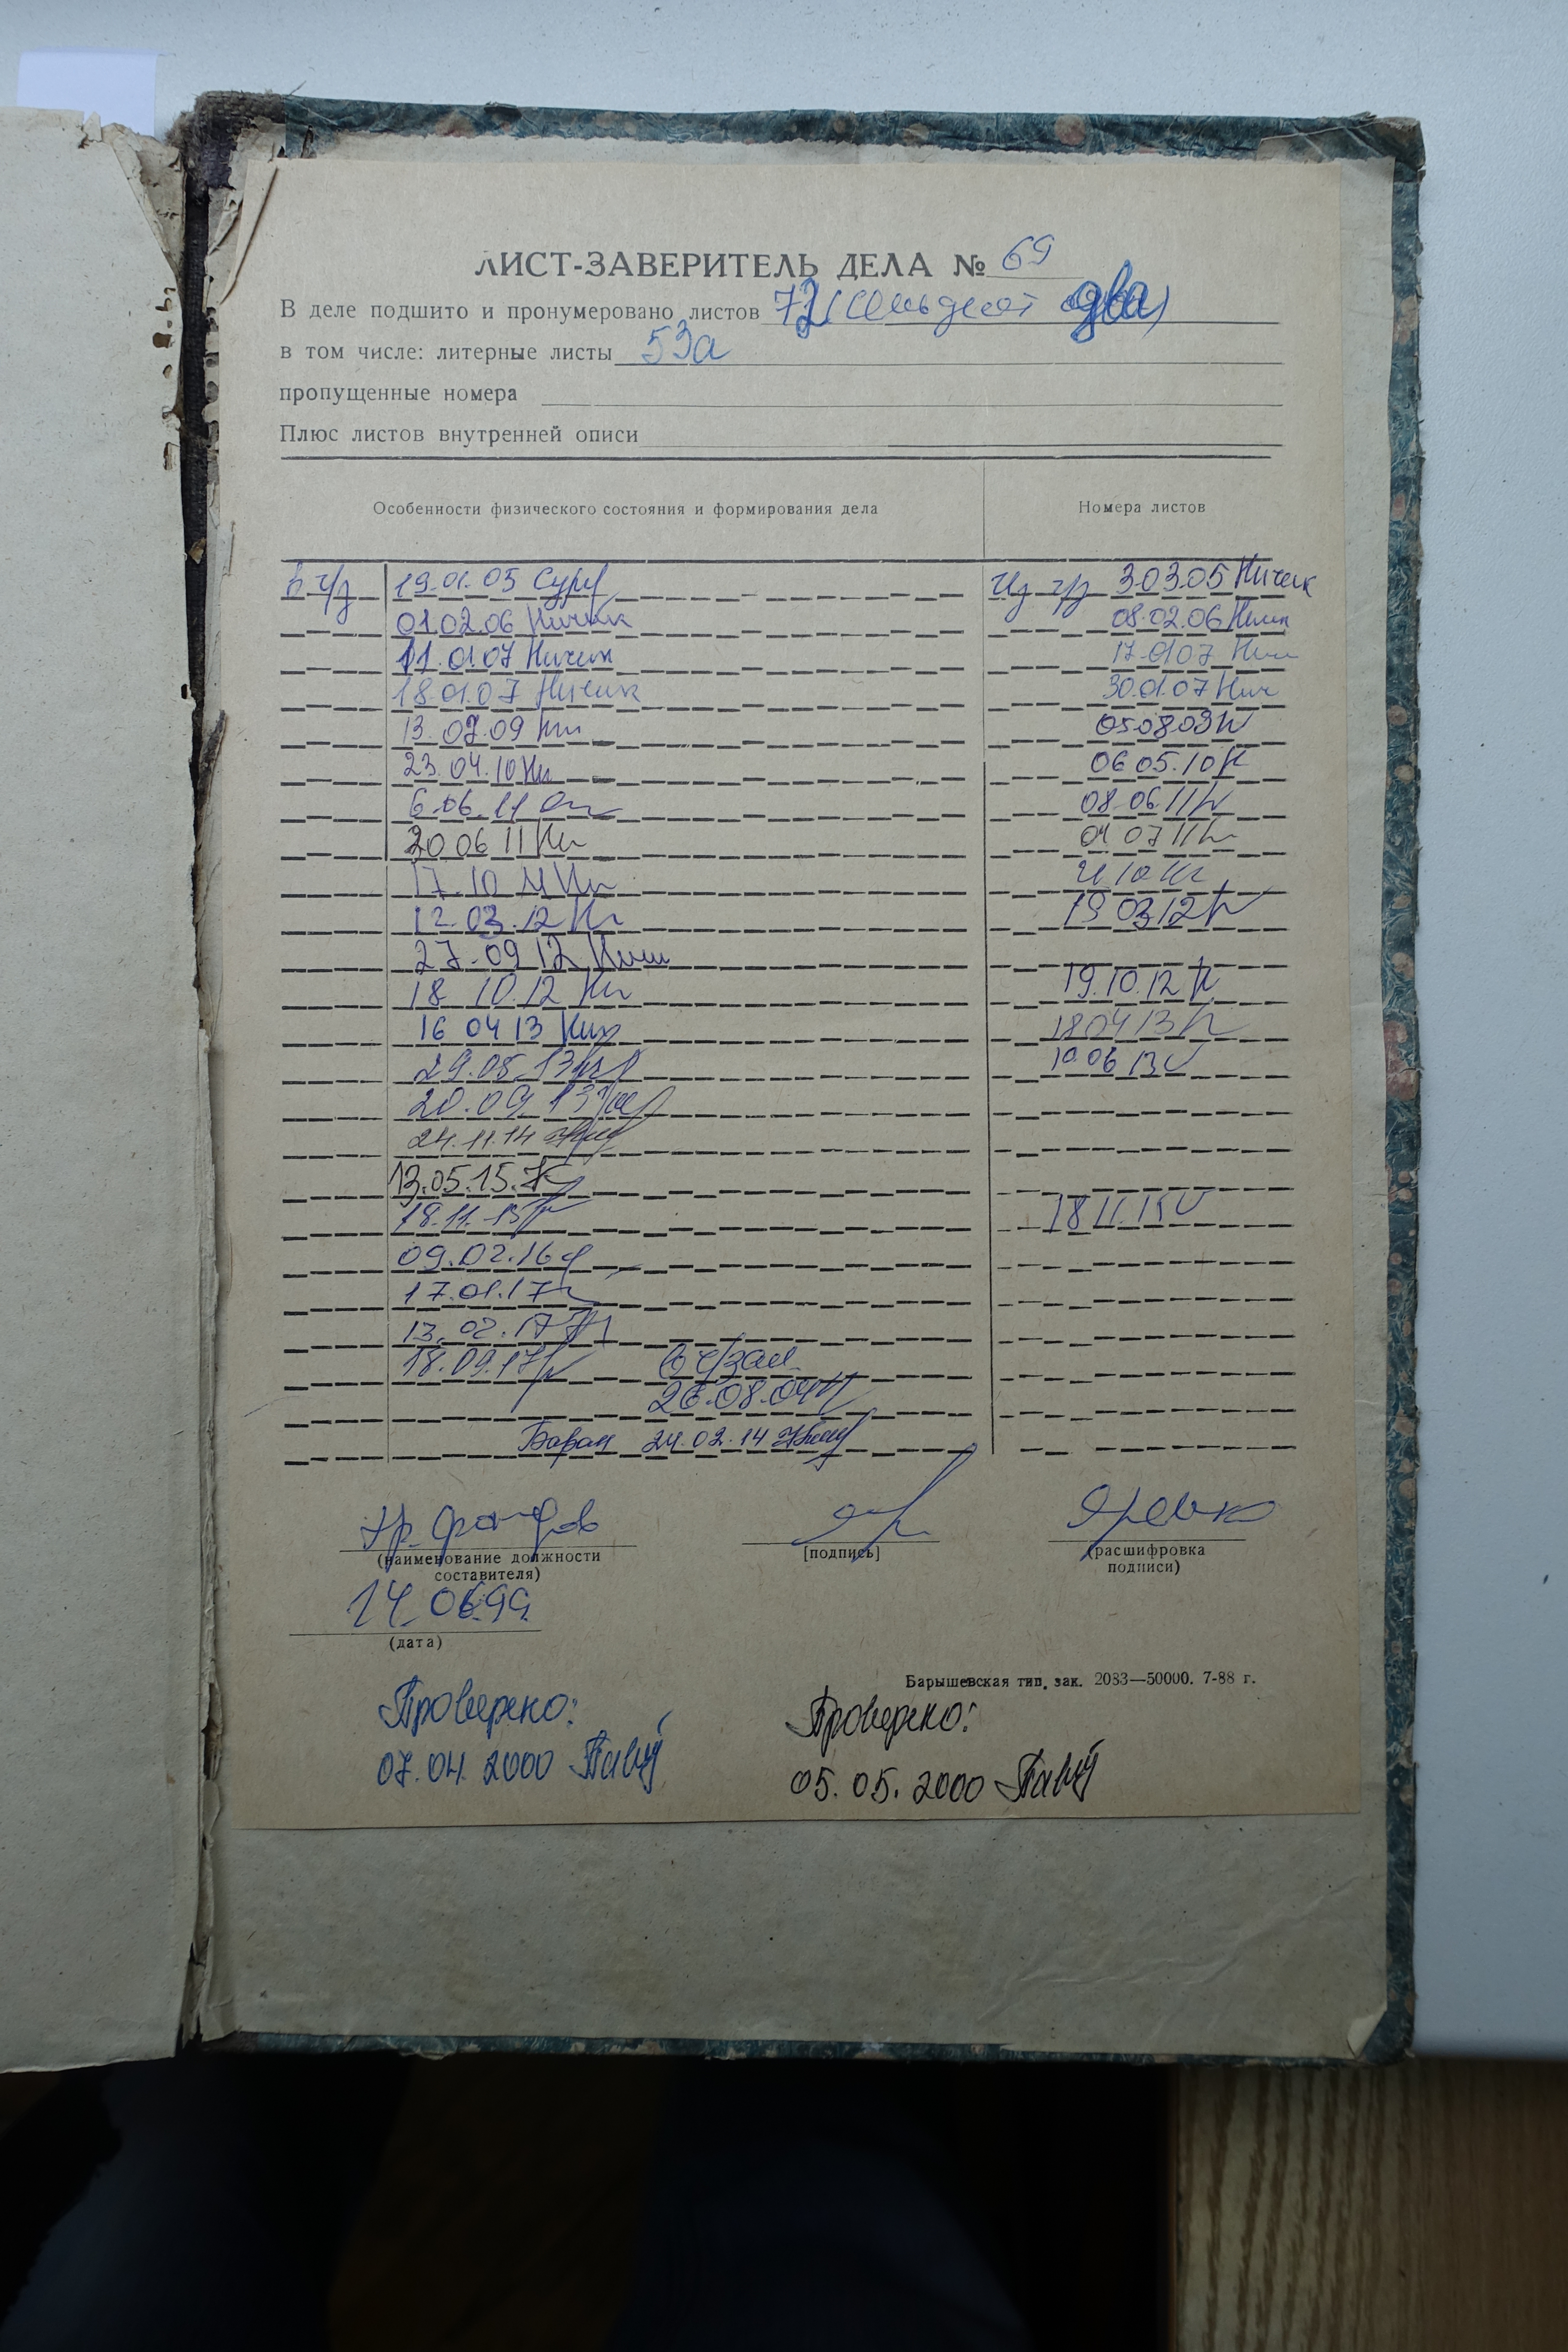 ЛИСТ-ЗАВЕРИТЕЛЬ ДЕЛА № 69
В деле подшито и пронумеровано листов 72 (семьдесят два)
в том числе: литерные листы 53а
пропущенные номера
Плюс листов внутренней описи
Особенности физического состояния и формирования дела Номера листов
в ч/з 19.01.05 Из ч/з 30305 Ничик
01.02.06 Ничик 08.02.06
11.01.07 Ничик 17.0107
18.01.07 Ничик 30.01.07 Нич
13.07.09 050809
23.04.10 06 05.10
6.06.11 08.06.11
20 06 11 04 07 11
17.10 11
12.03.12 19 03 12
27.09 12
18 10.12 19.10.12
16 04 13 18 04 13
29.05.13 10.06 13
20.09 13
24.11.14
13.05.15.
18.11.15 18 11.15
09.02.16
17.01.17
13.02.17
18.09.17 в ч/зал
26.08.04
24.02.14
хр. фондов
(наименование должности составителя) [подпись] (расшифровка подписи)
14.06.99
(дата)
Барышевская тип. зак. 2083—50000. 7-88 г.
Проверено: Проверено:
07.04.2000 05.05.2000